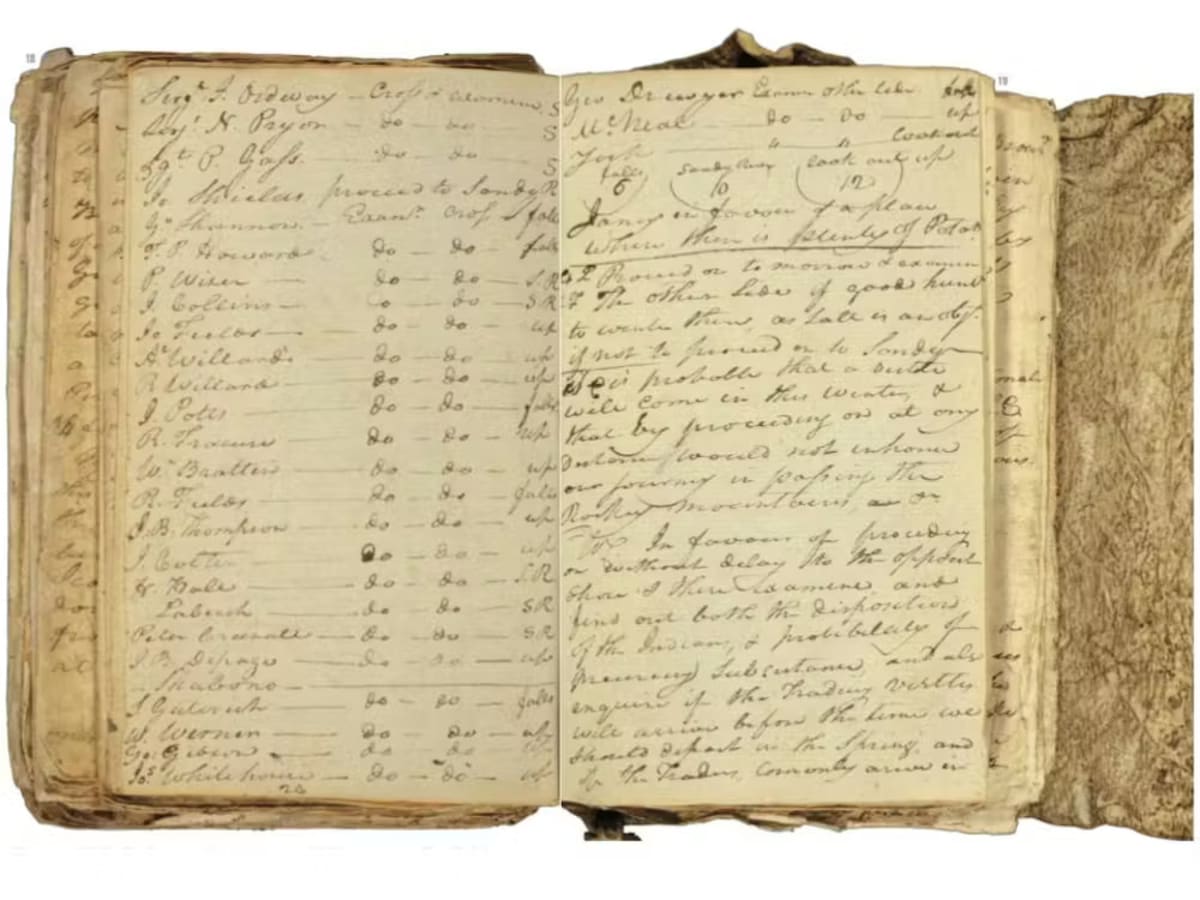 18
Serjt J. Ordway — Cross & examine S
Serj. N. Pryor — do — do — S
Sgt P. Gass — do — do — S
Jo. Shields proceed to Sandy R
Go. Shannon — Examn. Cross falls
T. P. Howard — do — do — falls
P. Wiser — do — do — S.R
J. Collins — o — do — S R
Jo Fields — do — do — up
Al. Willard — do — do — up
R Willard — do — do — up
J. Potts — do — do — falls
R. Frasure — do — do — up
Wm. Bratten — do — do — up
R. Fields — do — do — falls
J. B. Thompson — do — do — up
J. Colter — do — do — up
H. Hall — do — do — S.R
Labeech — do — do — S R
Peter Crusatte — do — do — S R
J. B. Depage — do — do — up
Shabono —
S. Guterich — do — do — falls
W. Werner — do — do — up
Go. Gibson — do — do — up
Jos. Whitehouse — do — do — up
19
Geo Drewyer Examn other side falls
McNeal — do — do — up
York — " " lookout
falls Sandy River look out up
6 10 12
Janey in favour of a place
where there is plenty of Potas.
Proceed on to morrow & examine
The other side if good hunting
to winter there, as Salt is an obt.
if not to proceed on to Sandy
it is probable that a vestle
will come in this winter, &
that by proceeding on at any
distance would not inhance
our journey in passing the
Rockey mountains, &c
In favour of proceding
on without delay to the opposit
shore & there examine, and
find out both the disposition
of the Indians, & probibilaty of
precureing Subsistance, and also
enquire if the Tradeing vestles
will arrive before the time we
should depart in the Spring, and
if the Traders, comonly arive in